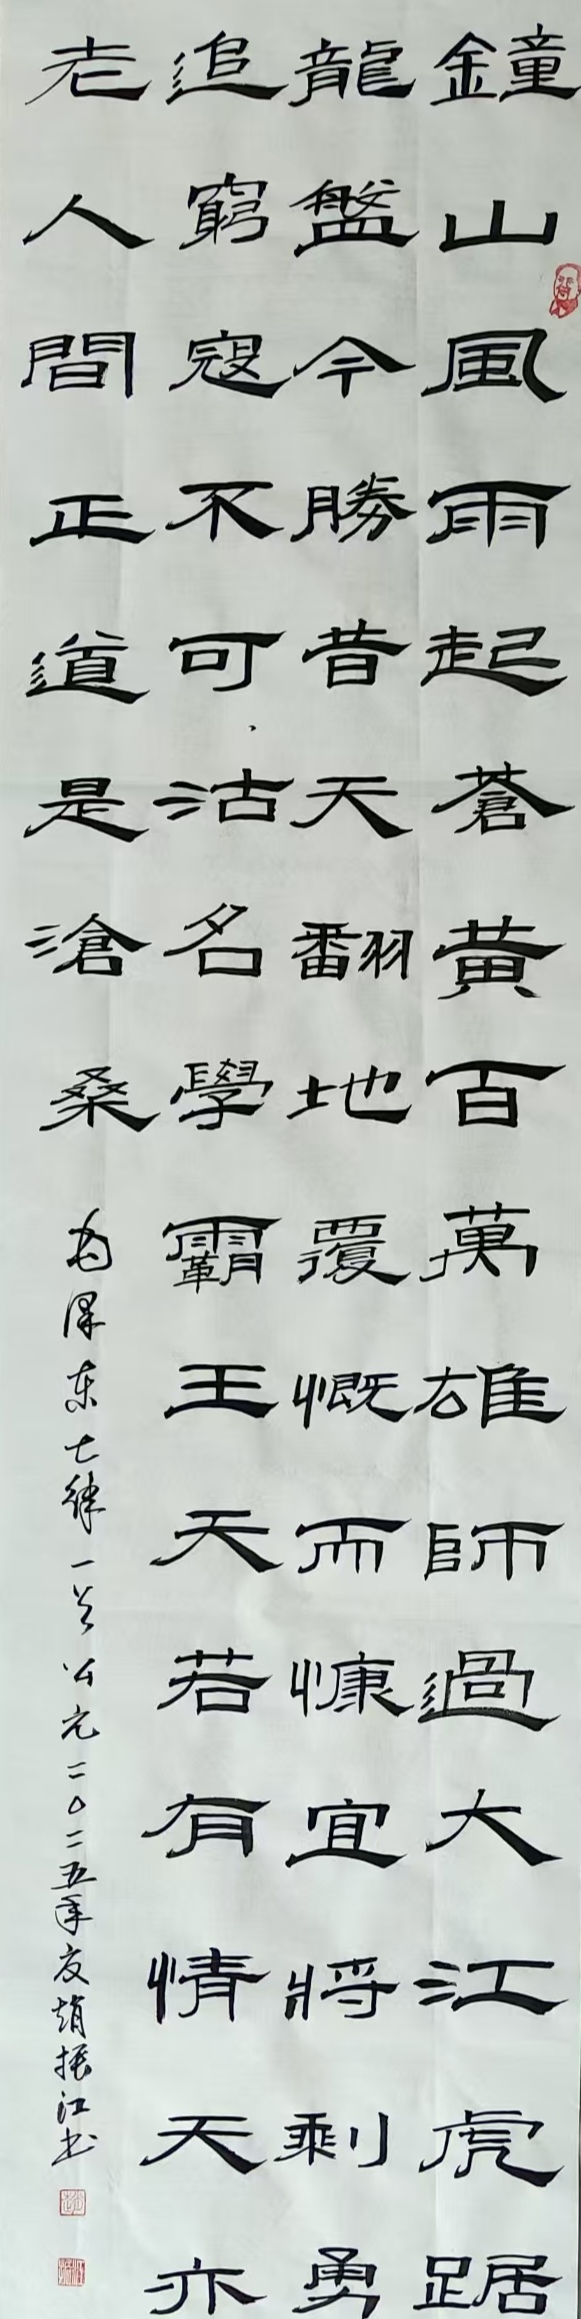 鐘山風雨起蒼黄百萬雄師過大江虎踞
龍盤今勝昔天翻地覆慨而慷宜將剩勇
追窮寇不可沽名學霸王天若有情天亦
老人間正道是滄桑
毛泽东七律一首公元二〇二五年夏趙振江书